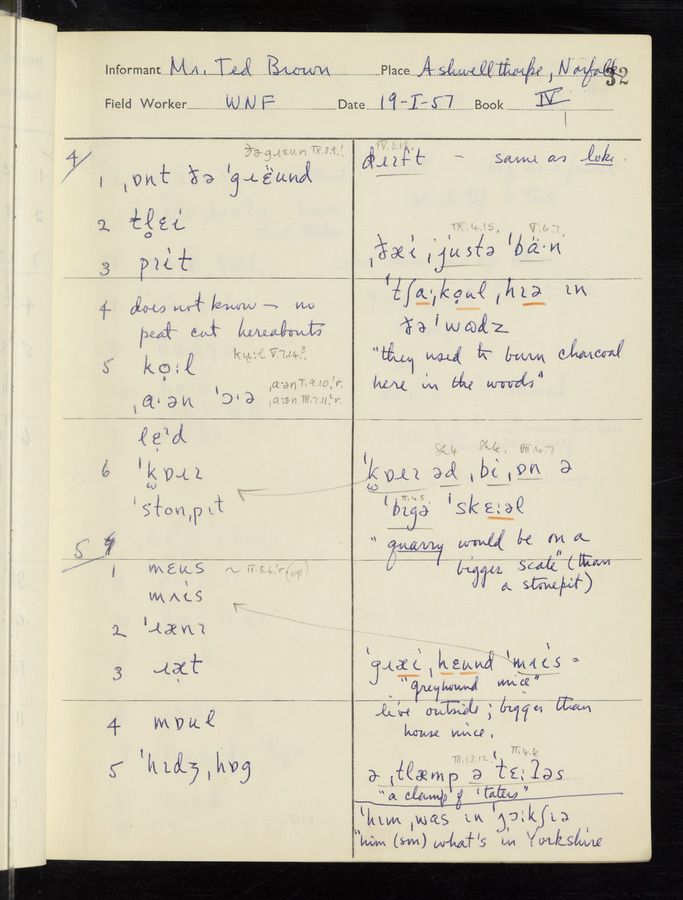 Informant Mr. Ted Brown Place Ashwellthorpe, Norfolk 32
Field Worker WNF Date 19-I-57 Book IV
4/
1 ˌɒnt ðə ˈgɹɛ̈ʊnd
2 tl̥ɛi
3 pɹɪt
4 does not know – no
peat cut hereabouts
5 kọːl kụːl V.7.14.³
ˌaˑən ˈɔˑə
lɛ̣ˈd
6 ˈkɒɪɹ
ˈstonˌpɪt
5
1 mɛʊs
mʌɪs
2 ˈɹænɪ
3 ɹæt
4 mɒʊl
5 ˈhɪdʒˌhɒg
same as loke.
ˌðæi ˌjʊstə ˈbäˑn
ˈtʃaːˌkọʊl ˌhɪə ɪn
ðə ˈwʊdz
"they used to burn charcoal
here in the woods"
ˈkɒɪɹ əd ˌbi ˌɒn ə
ˈbɪgə ˈskɛːəl
"quarry would be on a
bigger scale" (than
a stonepit)
ˈgɹæi ˌhɛʊnd ˈmʌɪs =
"greyhound mice"
live outside; bigger than
house mice.
ə ˌtlæmp ə ˈtɛːʔəs
"a clamp of 'taters"
ˈhɪm ˌwas ɪn ˈjɔːkʃɪə
"him (sm) what's in Yorkshire